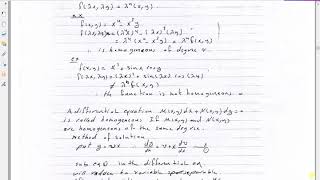 f(λx, λy) = λⁿ f(x,y)
ex
f(x,y) = x⁴ - x³y
f(λx,λy) = (λx)⁴ - (λx)³(λy)
= λ⁴(x⁴ - x³y) = λ⁴f(x,y)
∴ is homogeneous of degree 4
ex
f(x,y) = x³ + sin x cos y
f(λx,λy) = (λx)³ + sin(λx) cos(λy)
≠ λⁿ f(x,y)
∴ the function is not homogeneous
A differential equation M(x,y)dx + N(x,y)dy = 0
is called homogeneous if M(x,y) and N(x,y)
are homogeneous of the same degree.
method of solution
put y = vx ∴ dy/dx = v + x dv/dx
sub eq in the differential eq.
will reduce to variable separable